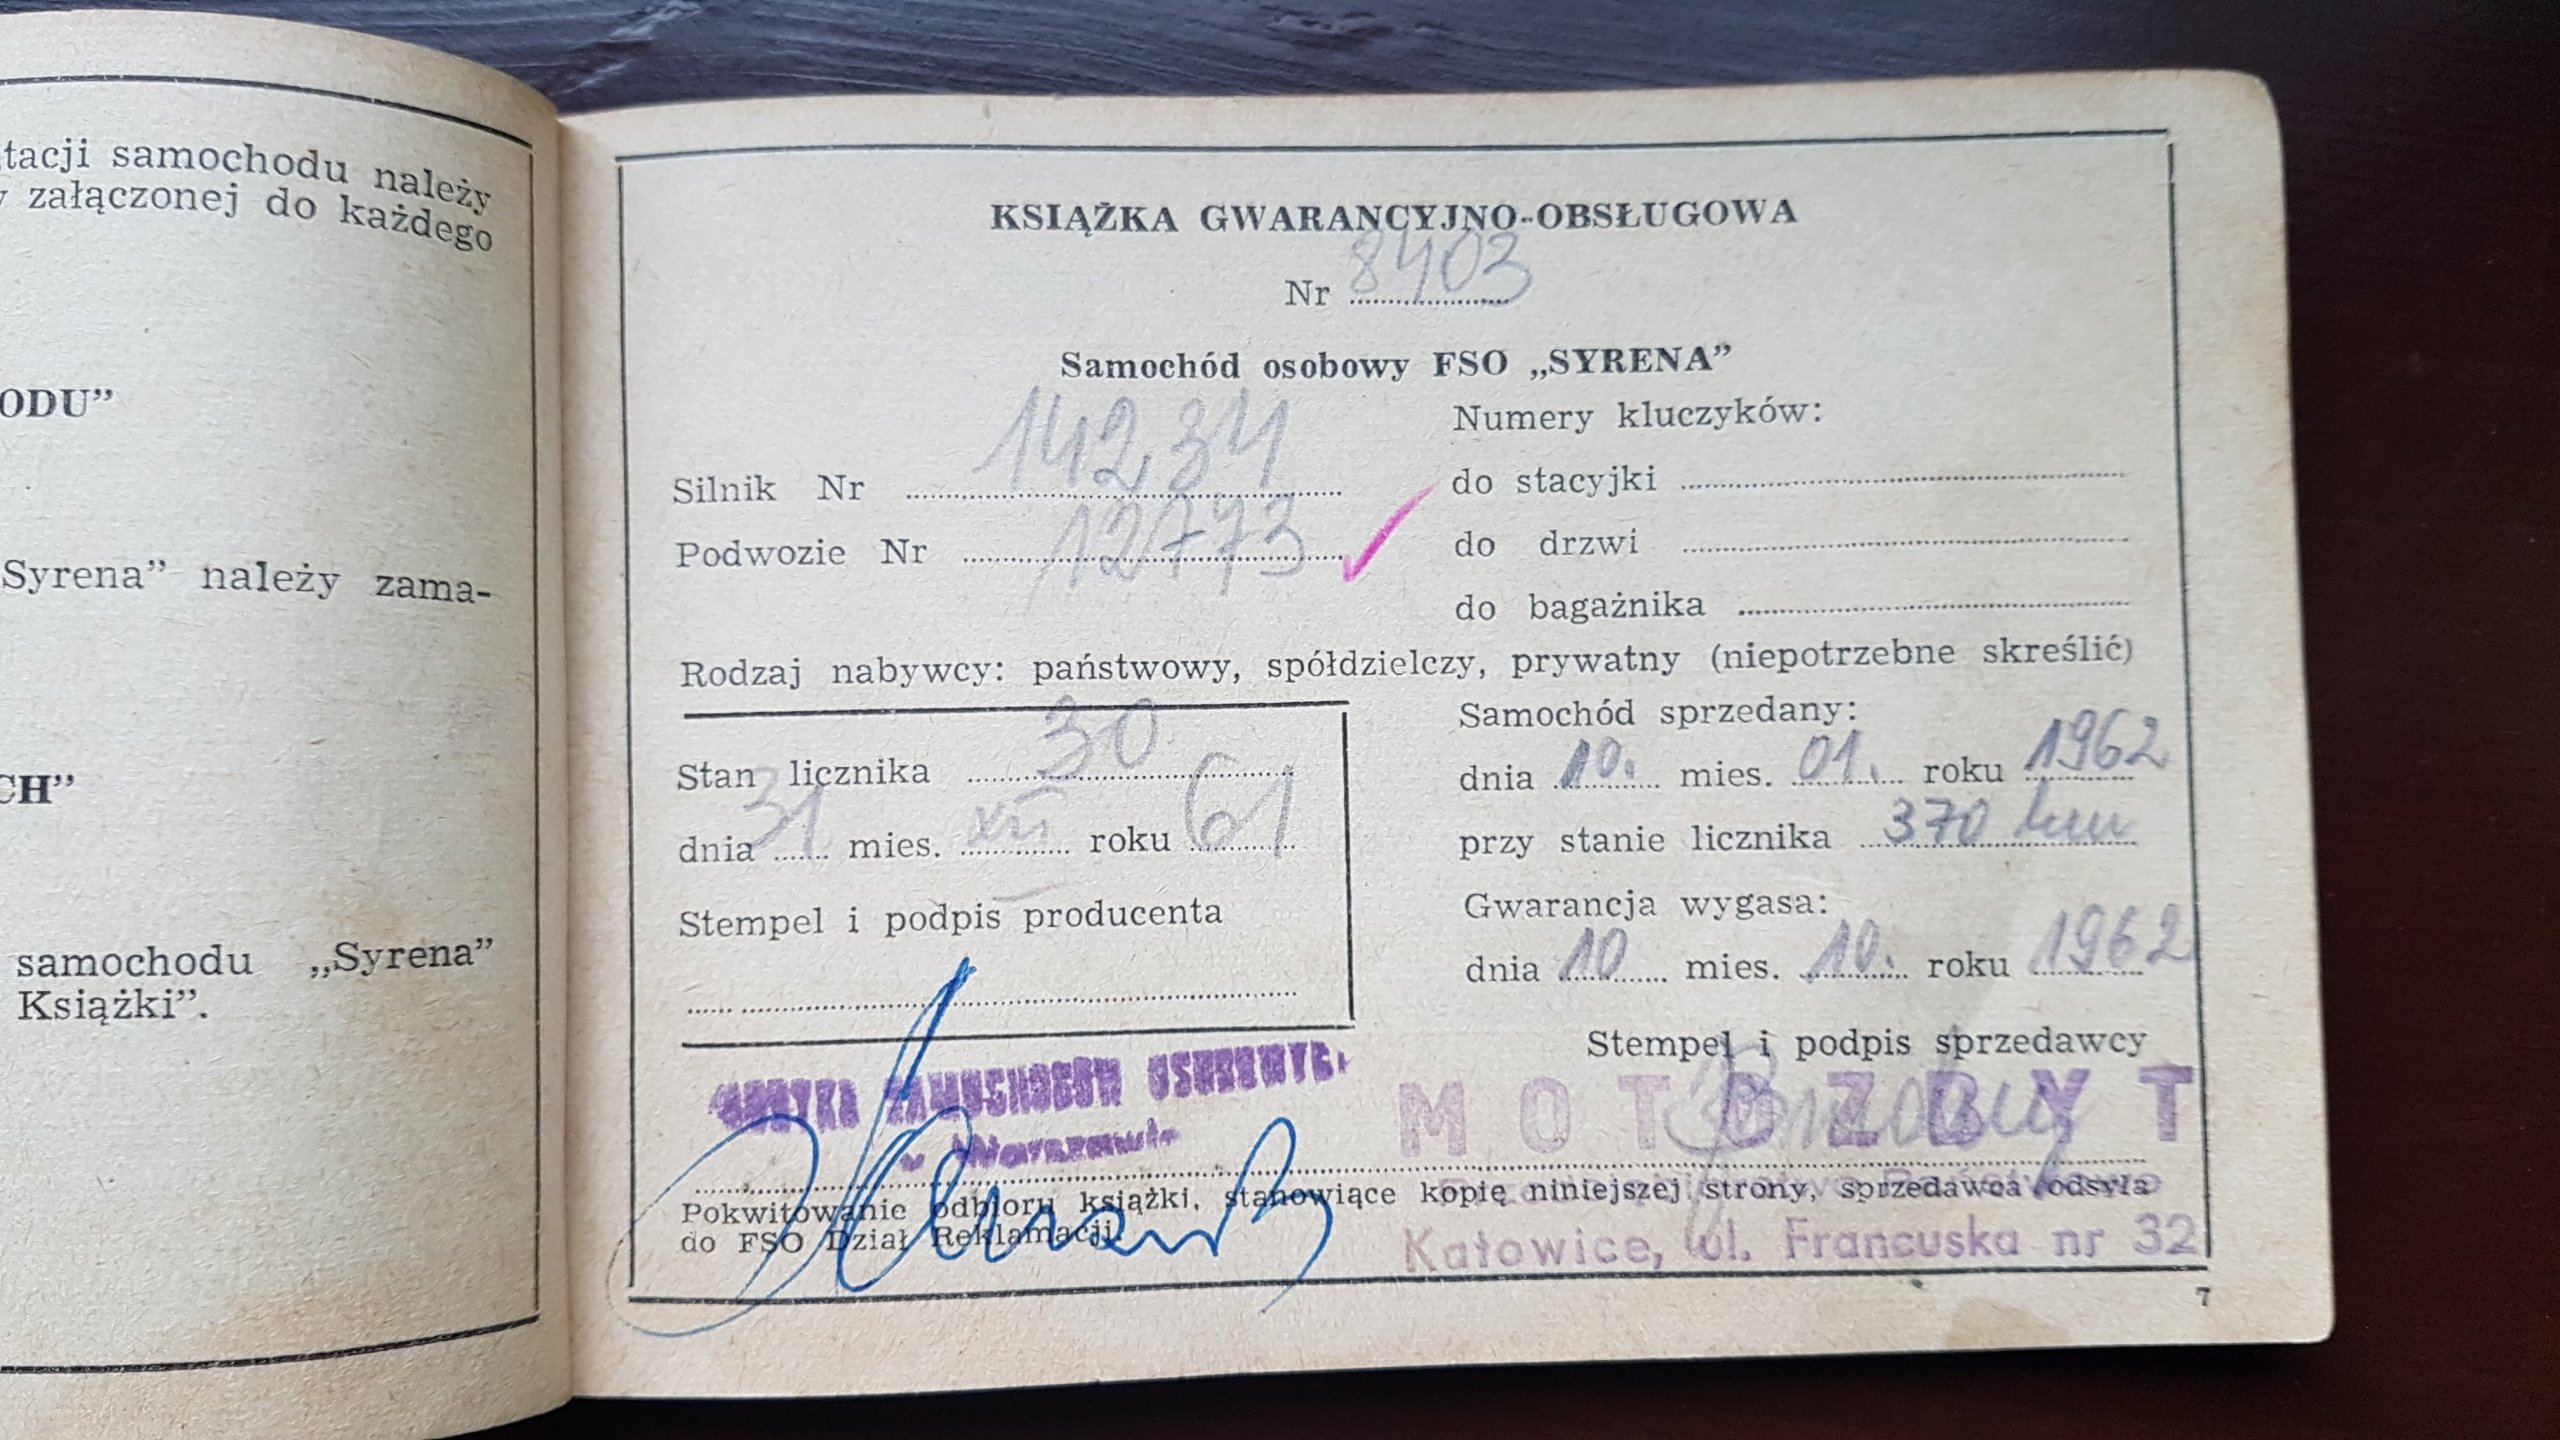 tacji samochodu należy
załączonej do każdego
ODU”
Syrena” należy zama-
CH”
samochodu „Syrena”
Książki”.
KSIĄŻKA GWARANCYJNO-OBSŁUGOWA
Nr 8403
Samochód osobowy FSO „SYRENA”
Silnik Nr 14234
Podwozie Nr 12773
Numery kluczyków:
do stacyjki
do drzwi
do bagażnika
Rodzaj nabywcy: państwowy, spółdzielczy, prywatny (niepotrzebne skreślić)
Stan licznika 30
dnia 31 mies. XII roku 61
Stempel i podpis producenta
Samochód sprzedany:
dnia 10. mies. 01. roku 1962
przy stanie licznika 370 km
Gwarancja wygasa:
dnia 10 mies. 10. roku 1962
Stempel i podpis sprzedawcy
FABRYKA SAMOCHODÓW OSOBOWYCH
w Warszawie
MOTOZBYT
Katowice, ul. Francuska nr 32
Pokwitowanie odbioru książki, stanowiące kopię niniejszej strony, sprzedawca odsyła
do FSO Dział Reklamacji.
7